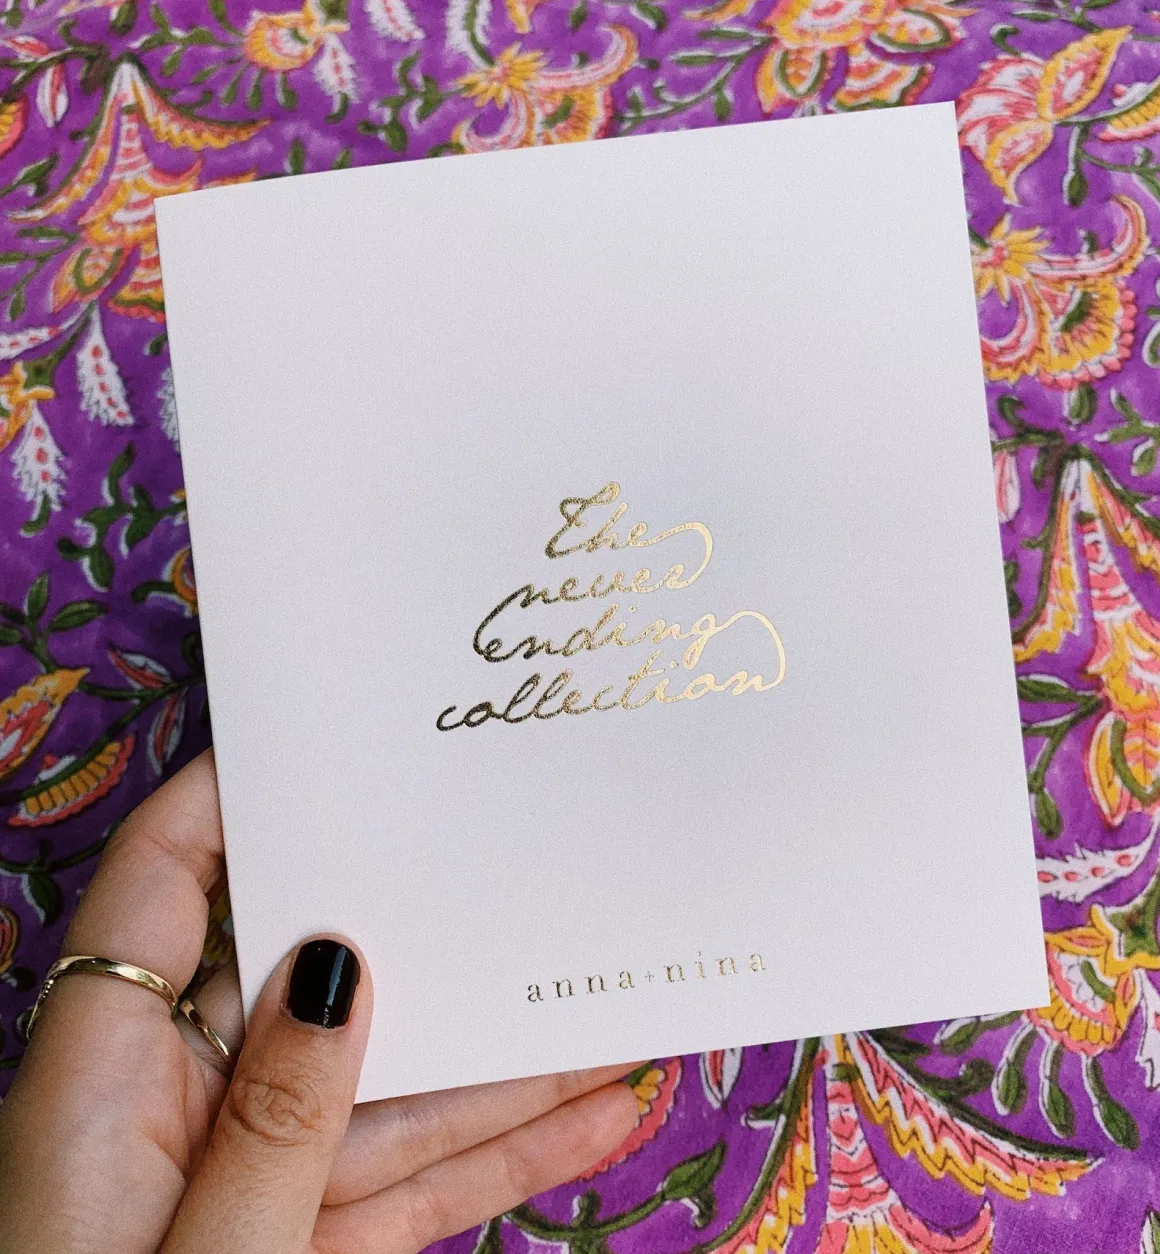 The
never
ending
collection
anna+nina